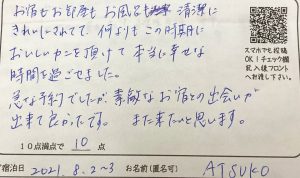 お宿もお部屋もお風呂も清潔に
きれいにされてて 何よりも この時期に
おいしいカニを頂けて 本当に幸せな
時間を過ごせました。
急な予約でしたが、素敵なお宿との出会いが
出来て良かったです。 また来たいと思います。
スマホでも投稿
OK!チェック欄
記入後フロント
へお渡し下さい。
10点満点で 10 点
宿泊日 2021.8.2~3 お名前(匿名可) ATSUKO